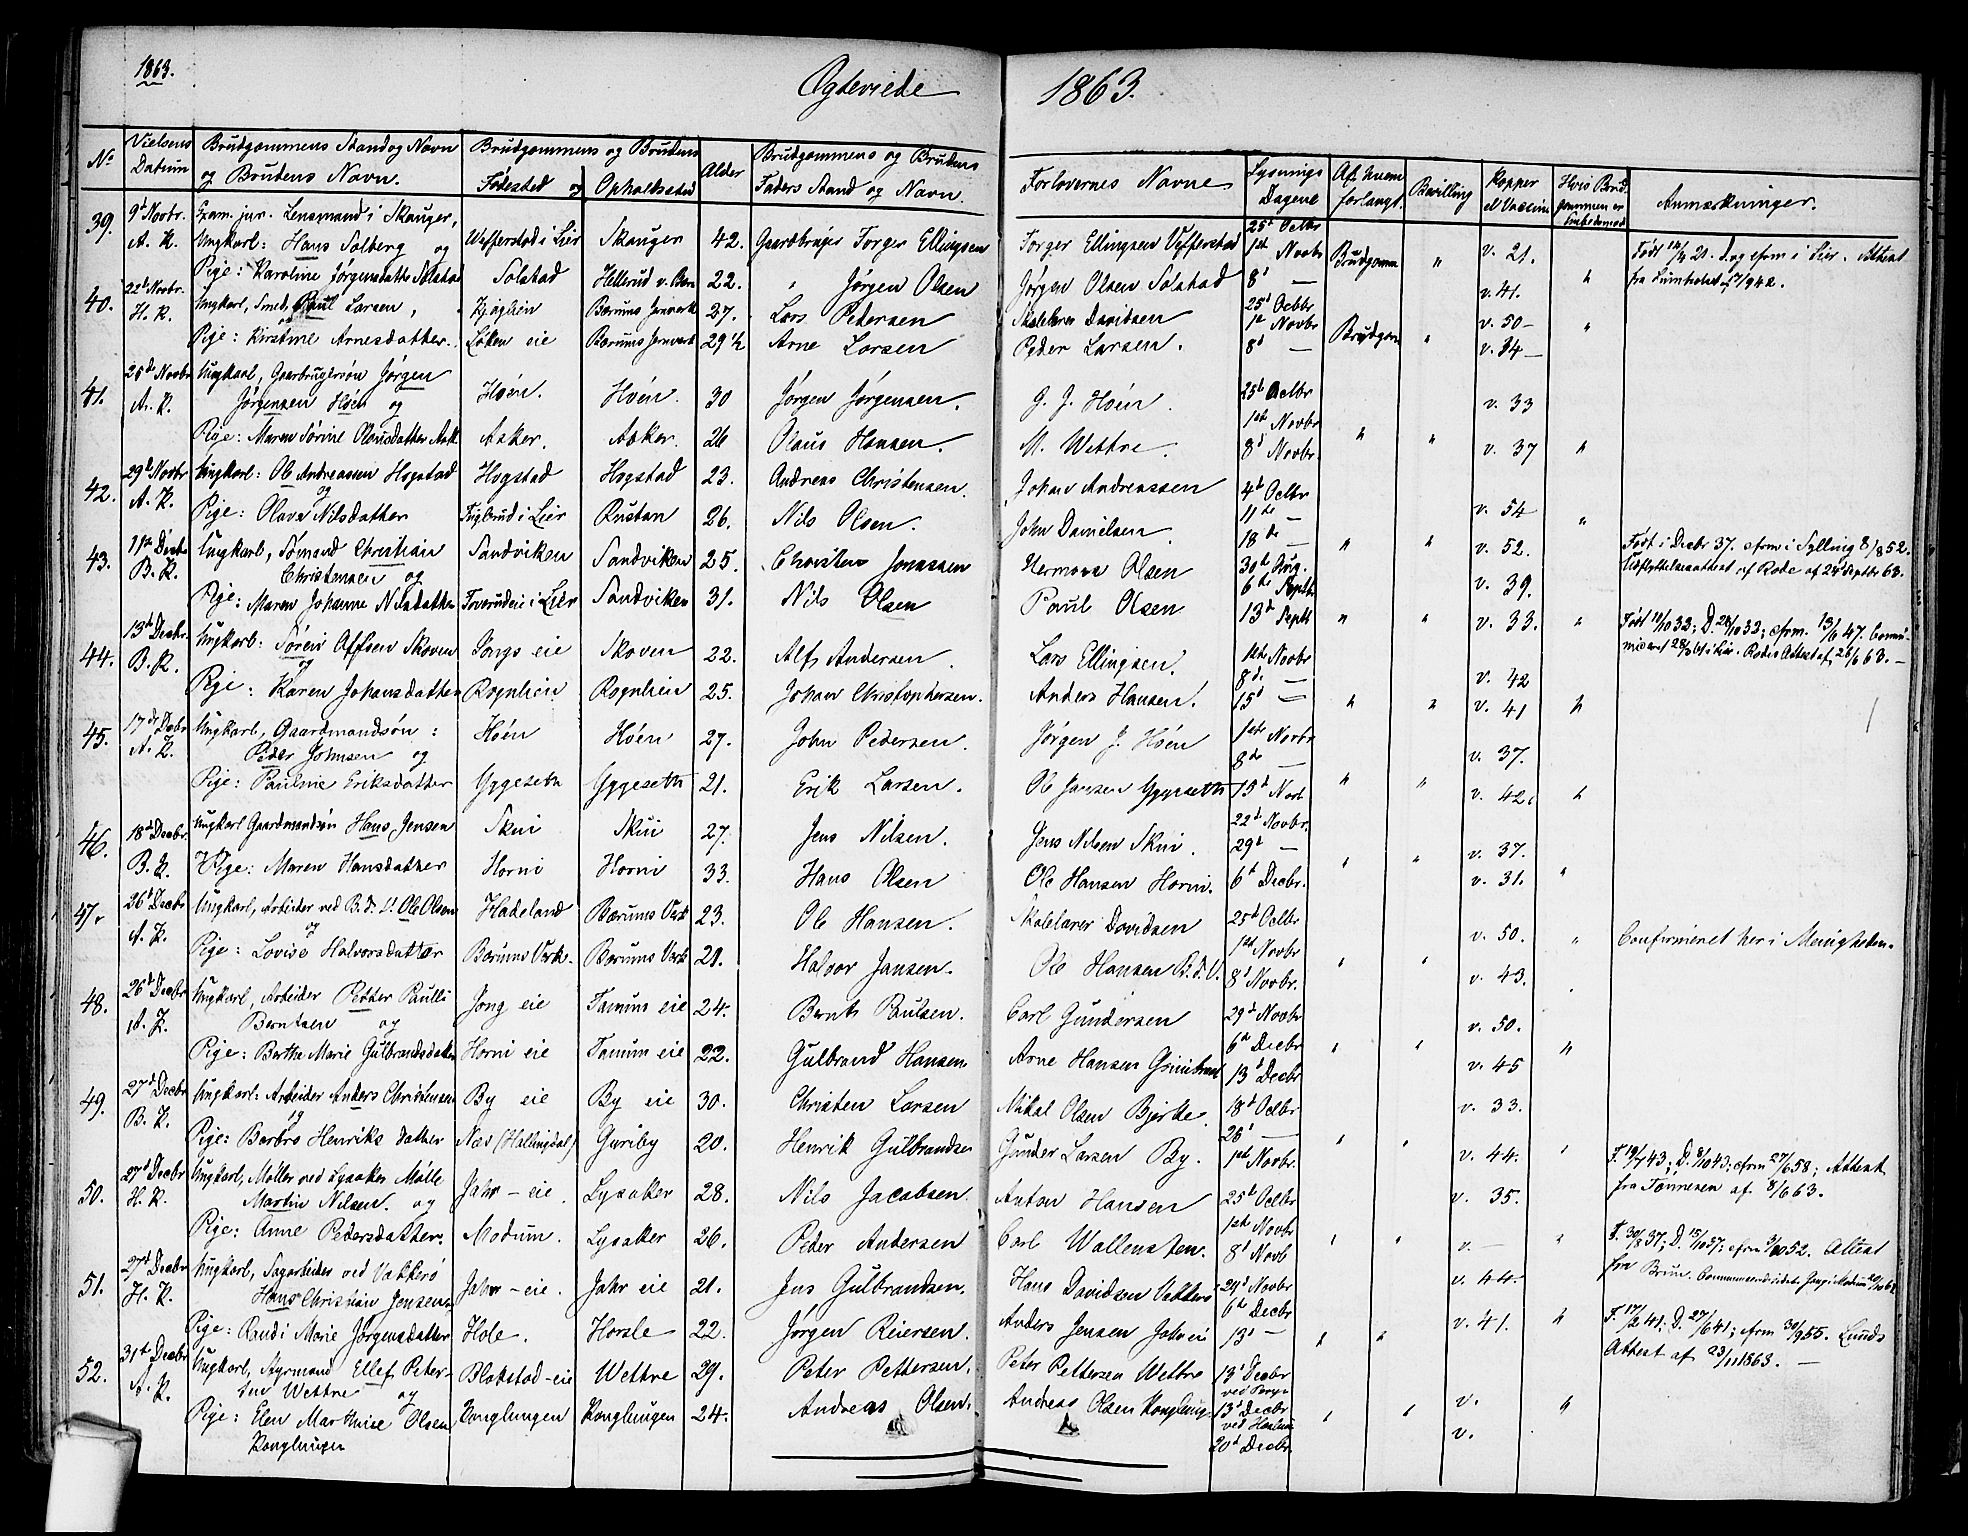 1863.
Ægteviede
1863.
No Vielsens Datum Brudgommens Stand og Navn og Brudens Navn. Brudgommens og Brudens Fødested og Opholdssted Alder Brudgommens og Brudens Faders Stand og Navn. Forlovernes Navne Lysnings Dagene Af hvem forlangt. Bevilling Kopper el Vaccine Hvis Brudgommen er Embedsmand Anmærkninger.
39. 9d Novbr. Exam. jur. Lensmand i Skauger,
A. K. Ungkarl: Hans Solberg og Wefferstad i Lier Skauger 42. Gaardbruger Torger Ellingsen Torger Ellingsen Vefferstad 25d Octbr 1st Novbr Brudgomm " v. 21.
Pige: Karoline Jørgensdatter Solstad Solstad Hellerud v. Bær 22. " Jørgen Olsen Jørgen Olsen Solstad 8d — v. 41. "
40. 22d Novbr. H. K. Ungkarl, Smed, Paul Larsen, og Kjaglien Bærums Jernverk 27. Lars Pedersen Skolelærer Davidsen 25d Octbr 1st Novbr v. 50 —
Pige: Kirstine Arnesdatter. Løken eie Bærums Jernverk 29 1/2 Arne Larsen Peder Larsen. 8d — Brudgom " v. 34 — "
41. 25d Novbr A. K. Ungkarl, Gaarbrugersøn Jørgen Jørgensen Høen og Høen. Høen. 30 Jørgen Jørgensen. G. J. Høen. 25d Octbr 1st Novbr v. 33
Pige: Maren Sørine Olausdatter Ask Asker. Asker. 26 Olaus Hansen. M. Wettre. 8d Novbr. " " v. 37 "
42. 29d Novbr A. K. Ungkarl: Ole Andreassen Hogstad og Hogstad Hogstad 23. Andreas Christensen. Johan Andreassen 4d Octbr 11te — v. 54
Pige: Olava Nilsdatter Fuglerud i Lier Rustan 26. Nils Olsen. John Danielsen. 18de — " " v. 52. "
Født i Decbr 37. cfrm i Sylling 8/8 52. Udflyttelsesattest af Rode af 24 Septbr 63.
43. 11te Decbr B. K. Ungkarl, Sømand Christian Christensen og Sandviken Sandviken 25. Christen Jonassen Herman Olsen 30te Aug. 6te Septbr v. 39.
Pige: Maren Johanne Nilsdatter Toverudeie i Lier Sandviken 31. Nils Olsen Paul Olsen 13de Septb " " v. 33. "
Født 11/10 32; D. 28/10 32; cfrm. 13/6 47.
44. 13d Decbr. B. K. Ungkarl: Søren Alfsen Skoven og Jongs eie Skoven 22. Alf Andersen. Lars Ellingsen. 1ste Novbr 8de — v. 42
Pige: Karen Johansdatter Rognlien Rognlien 25. Johan Christophersen. Anders Hansen. 15d — " " v. 41 "
45. 17de Decbr A. K. Ungkarl, Gaardmandsøn: Peder Johnsen og Høen Høen 27. John Pedersen. Jørgen J. Høen 1ste Novbr 8de — v. 37.
Pige: Pauline Eriksdatter Yggeseth Yggeseth 21. Erik Larsen. Ole Jansen Yggeseth 15d Novb " " v. 42. "
46. 18d Decbr. B. K. Ungkarl Gaardmandsøn Hans Jensen Skui Skui 27. Jens Nilsen Jens Nilsen Skui. 22d Novbr. 29d — v. 37.
Pige: Maren Hansdatter Horni Horni 33. Hans Olsen Ole Hansen Horni. 6d Decbr. " " v. 31. "
47. 26d Decbr A. K. Ungkarl, Arbeider ved B. J. V. Ole Olsen og Hadeland Bærums Verk 23. Ole Hansen. Skolelærer Davidsen 25d Octbr 1st Novbr v. 50. "
Pige: Lovise Halvorsdatter Bærums Verk. Bærums Verk 21. Halvor Jansen. Ole Hansen B. J. V. 8d Novbr. " " v. 43.
Confirmeret her i Menigheden.
48. 26d Decbr A. K. Ungkarl, Arbeider Petter Paulli Berntsen og Jong eie Tanum eie 24. Bernt Paulsen. Carl Gundersen 29d Novbr 6d Decbr v. 50.
Pige: Berthe Marie Gulbrandsdatter Horni eie Tanum eie 22. Gulbrand Hansen Arne Hansen 13d Decbr " " v. 45 "
49. 27d Decbr B. K. Ungkarl: Arbeider Anders Christensen og By eie By eie 30. Christen Larsen Mikal Olsen Bjerke. 18d Octbr 26d — v. 33.
Pige: Barbro Henriksdatter Næs (Hallingdal) Guriby 20. Henrik Gulbrandsen Gunder Larsen By. 1st Novbr. " " v. 44. "
F. 19/7 43; D. 8/10 43; cfrm 27/6 58; Attest fra Tønnesen af 8/6 63.
50. 27d Decbr H. K. Ungkarl, Møller ved Lysaker Mølle Martin Nilsen. og Jahr — eie. Lysaker 28. Nils Jacobsen Anton Hansen 25d Octbr 1st Novbr v. 35.
Pige: Anne Pedersdatter. Modum. Lysaker 26. Peder Andersen Carl Wallensten. 8d Novb " " v. — "
F. 30/8 37; D. 15/10 37; cfrm 3/10 52. Attest fra Brun.
51. 27d Decbr H. K. Ungkarl, Sagarbeider ved Vækkerø Hans Christian Jensen Jahr — eie. Jahr eie 21. Jens Gulbrandsen. Hans Davidsen 29d Novbr 6te Decbr v. 44.
Pige: Randi Marie Jørgensdatter Hole. Horsle 22. Jørgen Reiersen. Anders Jensen 13d — " " v. 41. "
F. 17/2 41; D. 27/6 41; cfrm 30/9 55. Lunds Attest af 23/11 1863. —
52. 31te Decbr A. K. Ungkarl, Styrmand Ellef Petersen Wettre og Blakstad — eie Wettre 29. Peter Pettersen. Peter Pettersen Wettre 13d Decbr v.
Pige: Elen Marthine Olsen Konglungen Konglungen Konglungen 24. Andreas Olsen. Andreas Olsen Konglung. 13d Decbr 20d Decbr. " " v. "